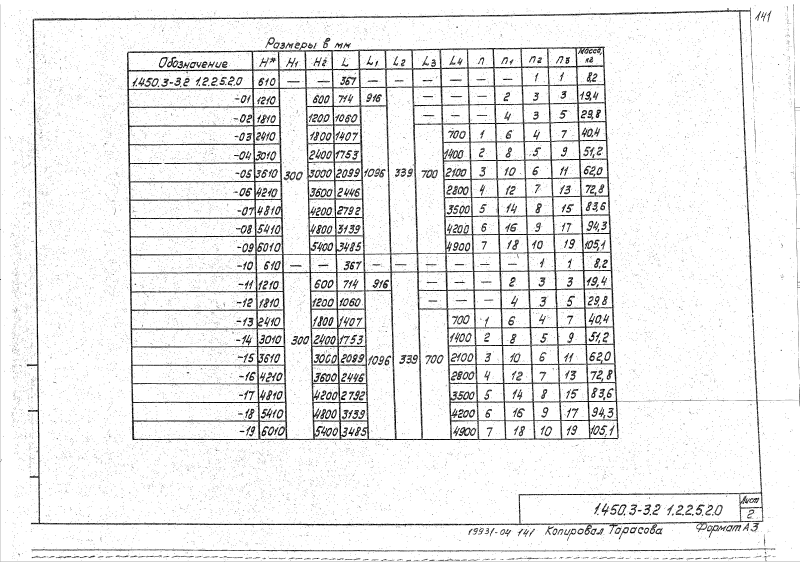 141
Размеры в мм
Обозначение H* H1 H2 L L1 L2 L3 L4 n n1 n2 n3 Масса, кг
1.450.3-3.2 1.2.2.5.2.0 610 — — 367 — — — — — — 1 1 8,2
-01 1210 600 714 916 — — — 2 3 3 19,4
-02 1810 1200 1060 — — — 4 3 5 29,8
-03 2410 1800 1407 700 1 6 4 7 40,4
-04 3010 2400 1753 1400 2 8 5 9 51,2
-05 3610 300 3000 2099 1096 339 700 2100 3 10 6 11 62,0
-06 4210 3600 2446 2800 4 12 7 13 72,8
-07 4810 4200 2792 3500 5 14 8 15 83,6
-08 5410 4800 3139 4200 6 16 9 17 94,3
-09 6010 5400 3485 4900 7 18 10 19 105,1
-10 610 — — 367 — — — — — — 1 1 8,2
-11 1210 600 714 916 — — — 2 3 3 19,4
-12 1810 1200 1060 — — — 4 3 5 29,8
-13 2410 1800 1407 700 1 6 4 7 40,4
-14 3010 300 2400 1753 1400 2 8 5 9 51,2
-15 3610 3000 2099 1096 339 700 2100 3 10 6 11 62,0
-16 4210 3600 2446 2800 4 12 7 13 72,8
-17 4810 4200 2792 3500 5 14 8 15 83,6
-18 5410 4800 3139 4200 6 16 9 17 94,3
-19 6010 5400 3485 4900 7 18 10 19 105,1
1.450.3-3.2 1.2.2.5.2.0
Лист
2
19931-04 141 Копировал Тарасова Формат А3